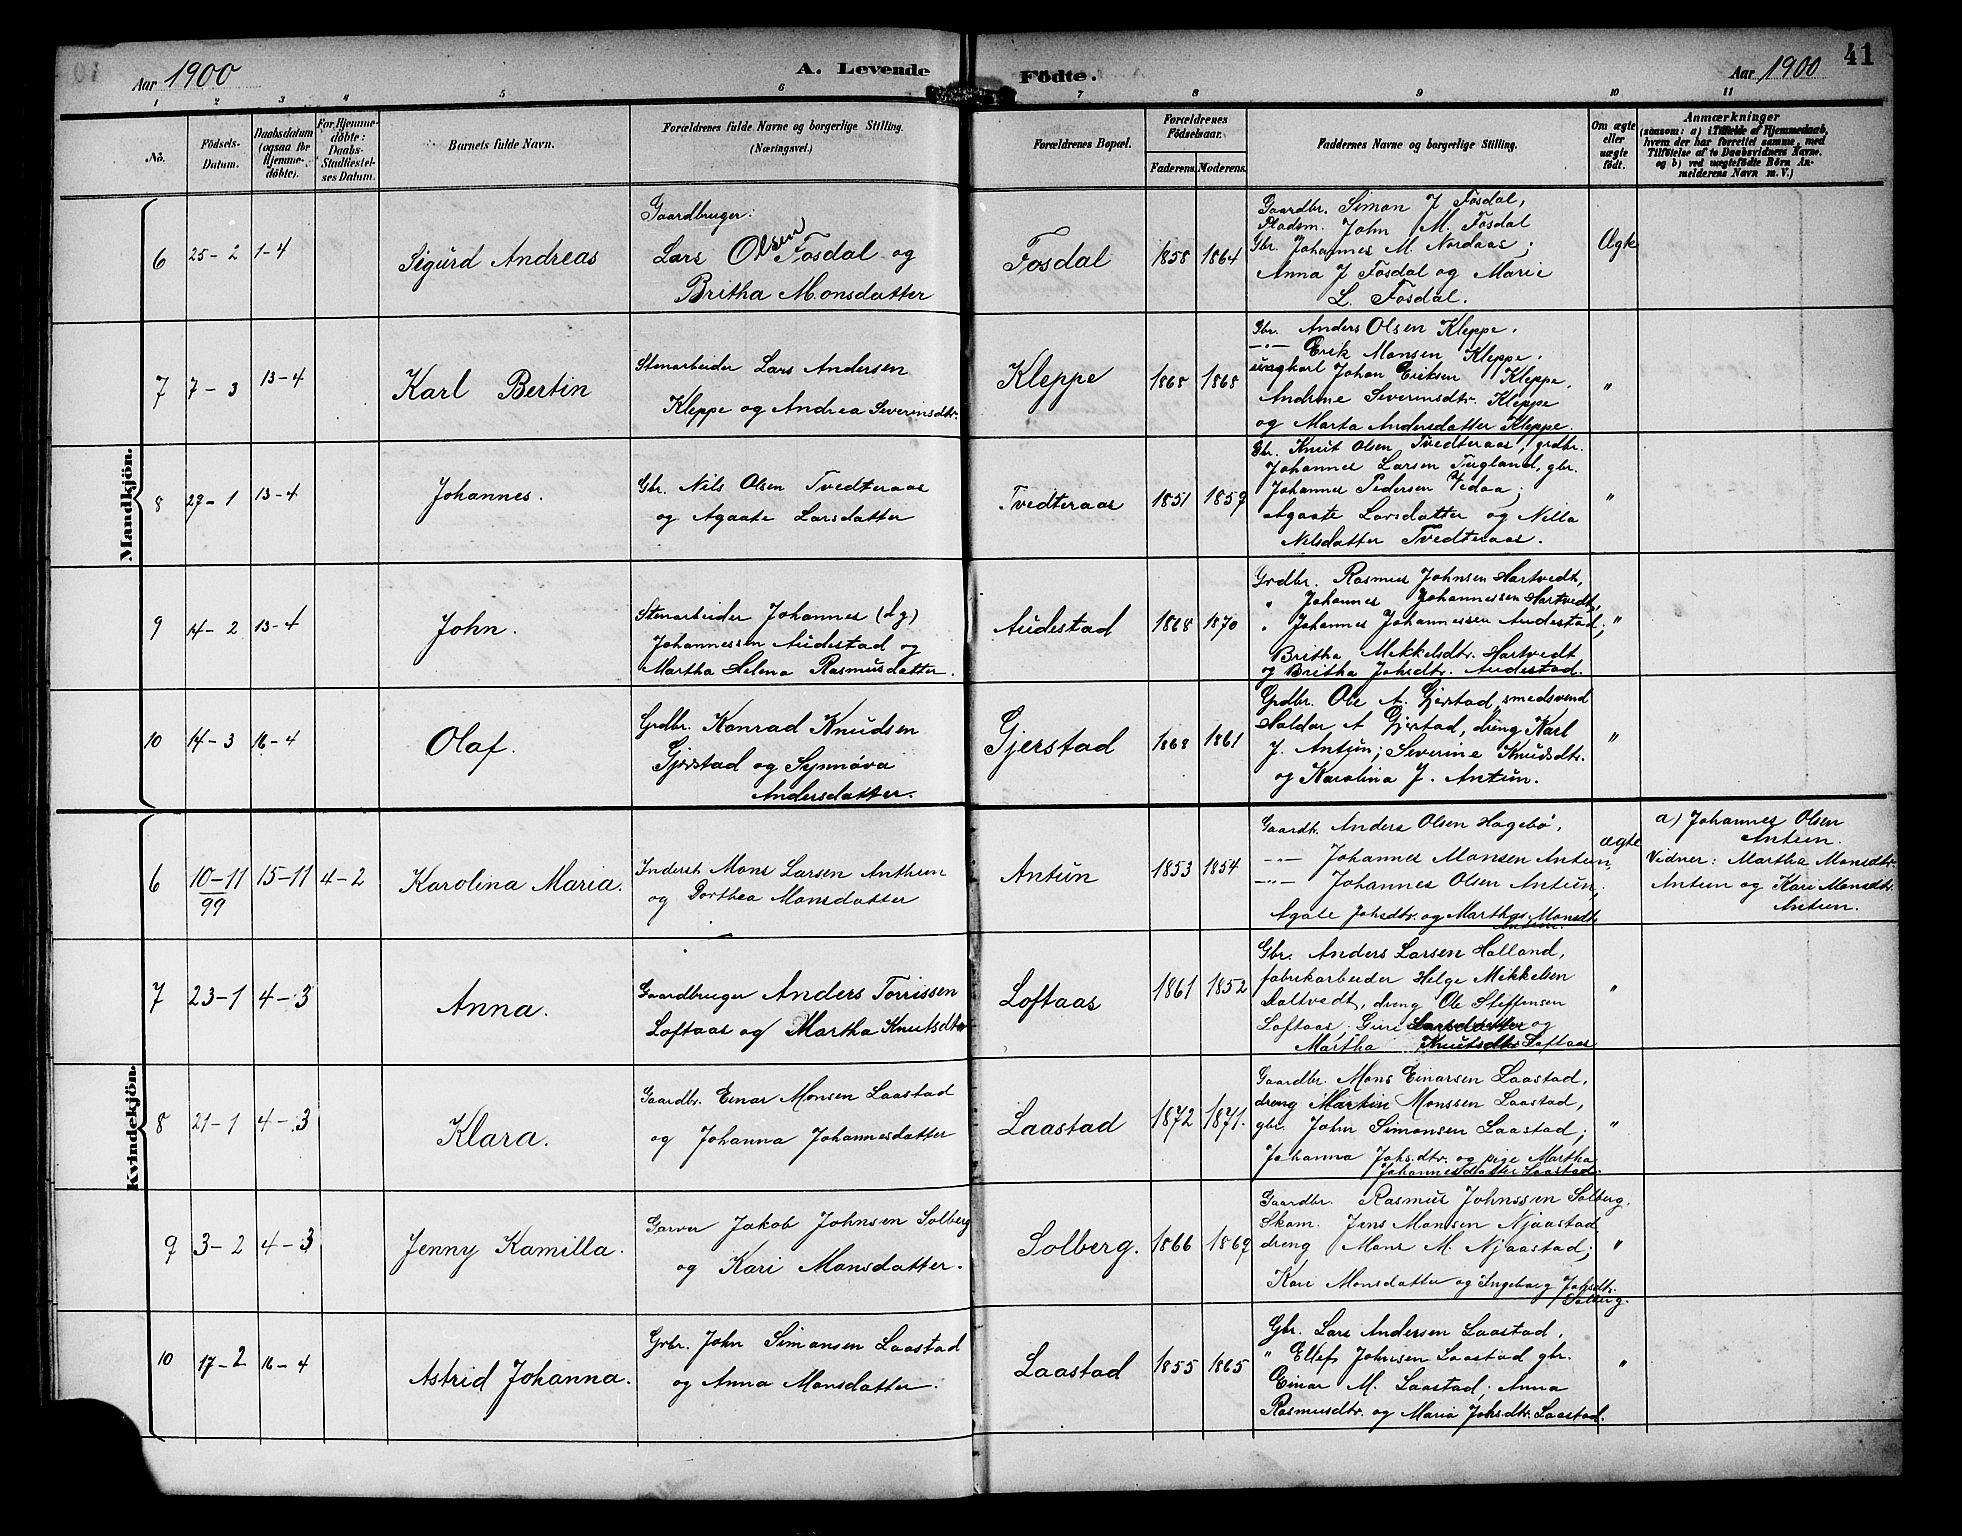 Aar 1900
A. Levende
Födte.
Aar 1900
41
1 2 3 4 5 6 7 8 9 10 11
No.
Födsels-
Datum.
Daabsdatum
(ogsaa for
Hjemme-
döbte).
For Hjemme-
döbte:
Daabs-
Stadfæstel-
ses Datum.
Barnets fulde Navn.
Forældrenes fulde Navne og borgerlige Stilling.
(Næringsvei.)
Forældrenes Bopæl.
Forældrenes
Födselsaar.
Faderens. Moderens.
Faddernes Navne og borgerlige Stilling.
Om ægte
eller
uægte
födt.
Anmærkninger
(saasom: a) i Tilfælde af Hjemmedaab,
hvem der har forrettet samme, med
Tilföielse af to Daabsvidners Navne,
og b) ved uægtefödte Börn An-
melderens Navn m. V.)
Mandkjön.
6 25-2 1-4
Sigurd Andreas
Gaardbruger:
Lars Olsen Fosdal og
Britha Monsdatter
Fosdal 1858 1864
Gaardbr. Simon J Fosdal,
Pladsm. John M. Fosdal
Gbr. Johannes M. Nordaas;
Anna J Fosdal og Marie
L. Fosdal.
Ægte
7 7-3 13-4
Karl Bertin
Stenarbeider Lars Andersen
Kleppe og Andrea Severinsdtr.
Kleppe 1868 1868
Gbr. Anders Olsen Kleppe,
-"- Erik Monsen Kleppe,
ungkarl Johan Eriksen Kleppe,
Andrine Severinsdtr. Kleppe
og Marta Andersdatter Kleppe.
"
8 27-1 13-4
Johannes.
Gbr. Nils Olsen Tvedteraas
og Agaate Larsdatter
Tvedteraas 1851 1859
Gbr. Knut Olsen Tvedteraas, grdbr.
Johannes Larsen Tugland, gbr.
Johannes Pedersen Vedaa;
Agaate Larsdatter og Nilla
Nilsdatter Tvedteraas.
"
9 14-2 13-4
John.
Stenarbeider Johannes (d.y)
Johannessen Audestad og
Martha Helena Rasmusdatter.
Audestad 1868 1870
Grdbr. Rasmus Johnsen Hartvedt,
" Johannes Johannessen Hartvedt,
" Johannes Johannessen Audestad;
Britha Mikkelsdtr. Hartvedt
og Britha Johsdtr. Audestad.
"
10 14-3 16-4
Olaf.
Grdbr. Konrad Knudsen
Gjerstad og Synnöva
Andersdatter.
Gjerstad 1868 1861
Grdbr. Ole A. Gjerstad, smedsvend
Haldor A Gjerstad, dreng Karl
J. Antun; Severine Knudsdtr.
og Karolina J. Antun.
"
Kvindekjön.
6 10-11/99 15-11 4-2
Karolina Maria.
Inderst Mons Larsen Anthun
og Dorthea Monsdatter
Antun 1853 1854
Gaardb. Anders Olsen Hagebö,
-"- Johannes Monsen Antun
-"- Johannes Olsen Antun;
Agate Johsdtr. og Martha Monsdt.
Antun.
ægte
a) Johannes Olsen
Antun.
Vidner: Martha Monsdtr.
Antun og Kari Monsdtr.
Antun.
7 23-1 4-3
Anna.
Gaardbruger Anders Torrissen
Loftaas og Martha Knutsdtr
Loftaas 1861 1852
Gbr. Anders Larsen Halland,
fabrikarbeider Helge Mikkelsen
Daltvedt, dreng Ole Steffensen
Loftaas, Guri Larsdatter og
Martha Knutsdtr Loftaas
"
8 21-1 4-3
Klara.
Gaardbr. Einar Monsen Laastad
og Johanna Johannesdatter
Laastad 1872 1871.
Gaardbr. Mons Einarsen Laastad,
dreng Martin Monssen Laastad,
gbr. John Simonsen Laastad;
Johanna Johsdtr. og pige Martha
Johannesdatter Laastad.
"
9 3-2 4-3
Jenny Kamilla.
Garver Jakob Johnsen Solberg
og Kari Monsdatter.
Solberg. 1866 1869
Gaardbr. Rasmus Johnssen Solberg.
Skom. Jens Monsen Njaastad
dreng Mons M. Njaastad;
Kari Monsdatter og Ingeborg Johsdtr.
Solberg.
"
10 17-2 16-4
Astrid Johanna.
Grbr. John Simonsen Laastad
og Anna Monsdatter.
Laastad 1855 1865
Gbr. Lars Andersen Laastad,
" Ellef Johnsen Laastad gbr.
Einar M. Laastad; Anna
Rasmusdtr. og Maria Johsdtr. Laastad.
"